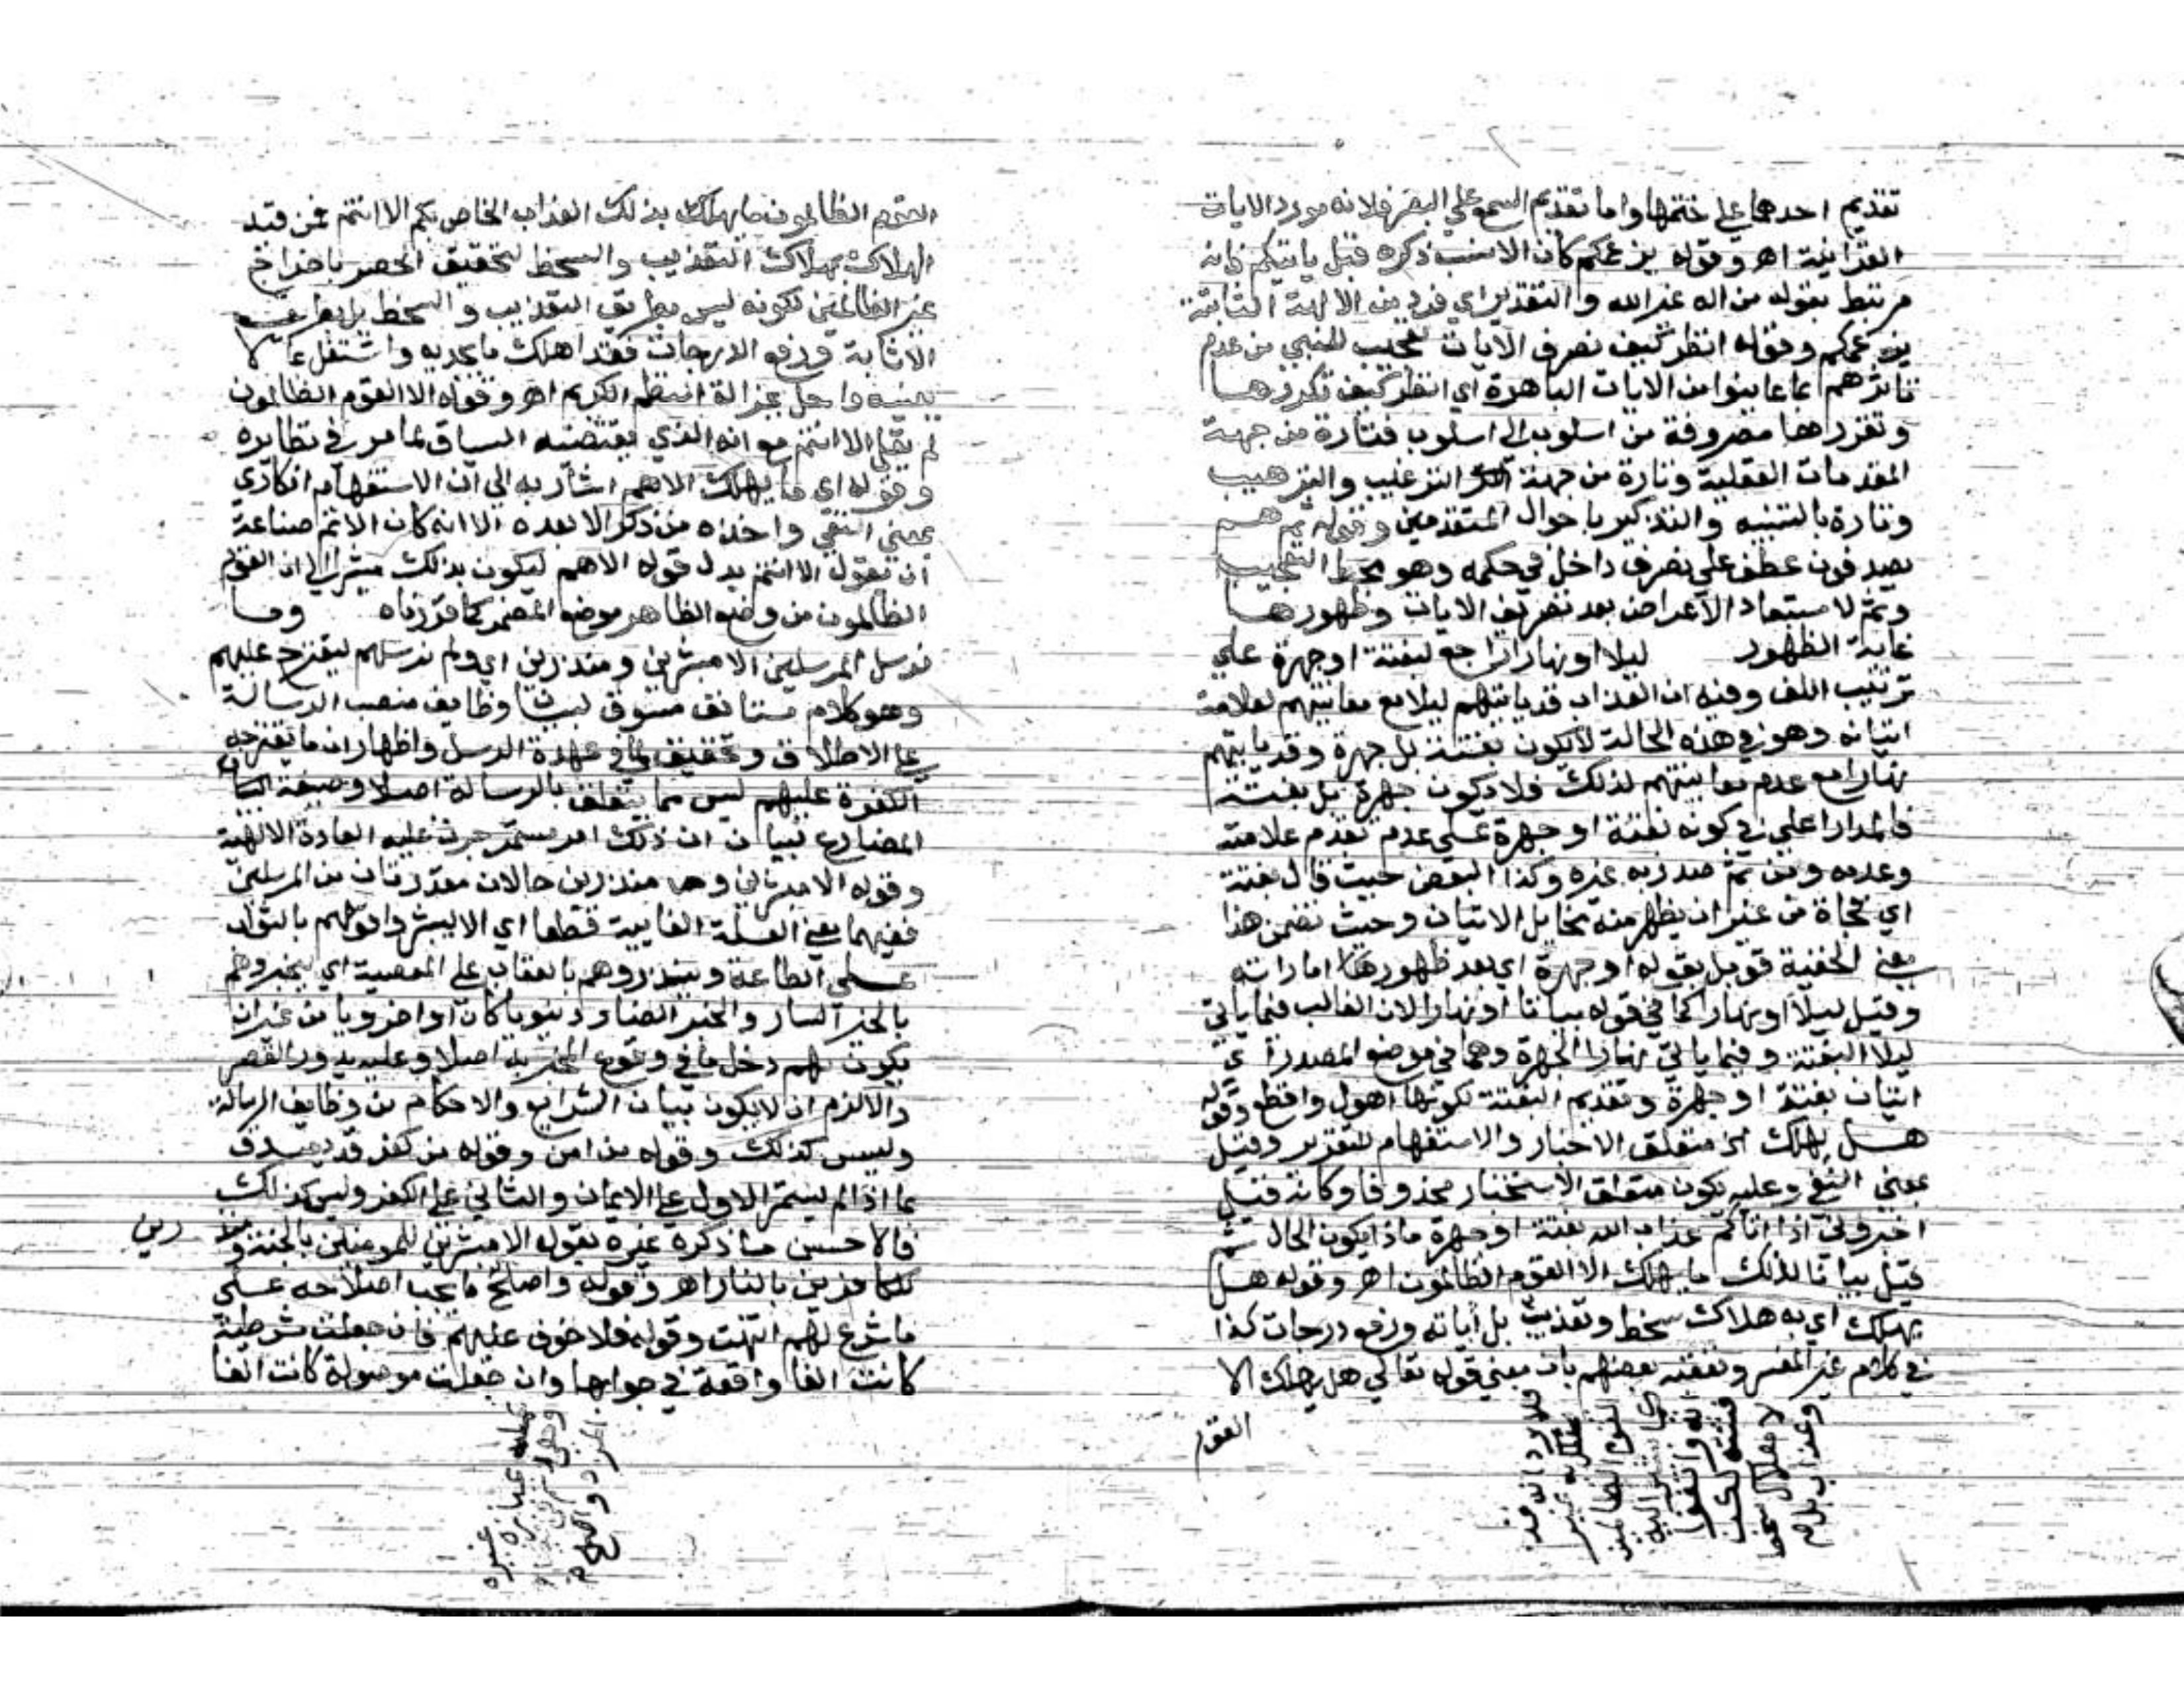 تقديم احدهما على ختمها واما تقديم السمع على البصر فلانه مورد الايات
القرانية اهـ وقوله بزعمكم كان الانسب ذكره قبل ياتيكم فانه
مرتبط بقوله من اله غير الله والتقدير اي فرد من الالهة الثابتة
بزعمكم وقوله انظر كيف نصرف الايات تعجيب للنبي من عدم
تاثرهم بما عاينوا من الايات الباهرة اي انظر كيف نكررها
ونقررها مصروفة من اسلوب الى اسلوب فتارة من جهة
المقدمات العقلية وتارة من جهة الترغيب والترهيب
وتارة بالتنبيه والتذكير باحوال المتقدمين وقوله ثم هم
يصدفون عطف على نصرف داخل في حكمه وهو محط التعجيب
وثم لاستبعاد الاعراض بعد تصريف الايات وظهورها
غاية الظهور ليلا او نهارا راجع لبغتة او جهرة على
ترتيب اللف وفيه ان العذاب قد ياتيهم ليلا مع معاينتهم لعلامة
اتيانه وهو في هذه الحالة لا يكون بغتة بل جهرة وقد ياتيهم
نهارا مع عدم معاينتهم لذلك فلا يكون جهرة بل بغتة
فالمدار اعلى في كونه بغتة او جهرة على عدم تقدم علامته
وعدمه ومن ثم صدر به غيره وكذا البعض حيث قال بغتة
اي فجاة من غير ان يظهر منه مخايل الاتيان وحيث تضمن هذا
معنى الخفية قوبل بقوله او جهرة اي بعد ظهور اماراته
وقيل ليلا او نهارا كما في قوله بياتا او نهارا لان الغالب فيما ياتي
ليلا البغتة وفيما ياتي نهارا الجهرة وهما في موضع المصدر اي
اتيان بغتة او جهرة وتقديم البغتة لكونها اهول وافظع وقوله
هـل يهلك الخ متعلق الاخبار والاستفهام للتقرير وقيل
بمعنى النفي وعليه يكون متعلق الاستخبار محذوفا وكانه قيل
اخبروني اذا اتاكم عذاب الله بغتة او جهرة ماذا يكون الحال ثم
قيل بيانا لذلك ما يهلك الا القوم الظالمون اهـ وقوله هـل
يهلك اي به هلاك سخط وتعذيب بل اثابة ورفع درجات كذا
في كلام غير المفسر وتعقبه بعضهم بان معنى قوله تعالى هل يهلك الا
القوم
القوم الظالمون ما يهلك بذلك العذاب الخاص بكم الا انتم فمن قيد
الهلاك بهلاك التعذيب والسخط لتحقيق الحصر باخراج
غير الظالمين لكونه ليس بطريق التعذيب والسخط بل بطريق
الاثابة ورفع الدرجات فقد اهلك ما يجديه واشتغل بما لا
يعنيه واخل بجزالة النظم الكريم اهـ وقوله الا القوم الظالمون
لم يقل الا انتم مع انه الذي يقتضيه السياق لما مر في نظايره
وقوله اي ما يهلك الا هم اشار به الى ان الاستفهام انكاري
بمعنى النفي واخذه من ذكر الا بعده الا انه كان الاتم صناعة
ان يقول الا انتم بدل قوله الا هم ليكون بذلك مشيرا الى ان القوم
الظالمون من وضع الظاهر موضع المضمر كما قررناه وما
نرسل المرسلين الا مبشرين ومنذرين اي ولم نرسلهم ليقترح عليهم
وهو كلام مستانف مسوق لبيان وظايف منصب الرسالة
على الاطلاق وتحقيق ما في عهدة الرسل واظهار ان ما يقترحه
الكفرة عليهم ليس مما يتعلق بالرسالة اصلا وصيغة
المضارع لبيان ان ذلك امر مستمر جرت عليه العادة الالهية
وقوله الا مبشرين ومنذرين حالان مقدرتان من المرسلين
ففيهما معنى العلة الغايية قطعا اي الا ليبشروا قومهم بالثواب
على الطاعة وينذروهم بالعقاب على المعصية اي ليخبروهم
بالخبر السار والخبر الضار دنيويا كان او اخرويا من غير ان
يكون لهم دخل ما في وقوع المخبر به اصلا وعليه يدور القصر
والالزم ان لا يكون بيان الشرايع والاحكام من وظايف الرسالة
وليس كذلك وقوله من امن وقوله من كفر قد يصدق
بما اذا لم يستمر الاول على الايمان والثاني على الكفر وليس كذلك
فالاحسن ما ذكره غيره بقوله الا مبشرين للمومنين بالجنة ومنذ
رين
للكافرين بالنار اهـ وقوله واصلح ما يجب اصلاحه على
ما شرع لهم انتهت وقوله فلا خوف عليهم فان جعلت شرطية
كانت الفا واقعة في جوابها وان جعلت موصولة كانت الفا